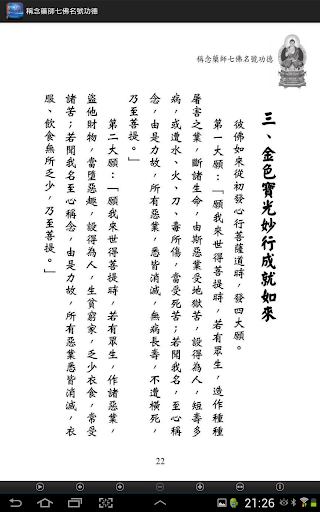 稱念藥師七佛名號功德
稱念藥師七佛名號功德
三、金色寶光妙行成就如來
彼佛如來從初發心行菩薩道時，發四大願。
第一大願：「願我來世得菩提時，若有眾生，造作種種
屠害之業，斷諸生命，由斯惡業受地獄苦，設得為人，短壽多
病，或遭水、火、刀、毒所傷，當受死苦；若聞我名，至心稱
念，由是力故，所有惡業，悉皆消滅，無病長壽，不遭橫死，
乃至菩提。」
第二大願：「願我來世得菩提時，若有眾生，作諸惡業，
盜他財物，當墮惡趣，設得為人，生貧窮家，乏少衣食，常受
諸苦；若聞我名至心稱念，由是力故，所有惡業悉皆消滅，衣
服、飲食無所乏少，乃至菩提。」
22
21:26